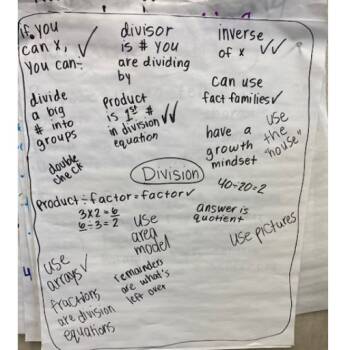 if you
can x,
you can ÷
divisor
is # you
are dividing
by
inverse
of x
divide
a big
# into
groups
Product
is 1st #
in division
equation
can use
fact families
have a
growth
mindset
use
the
"house"
double
check
Division
product ÷ factor = factor
3x2=6
6÷3=2
40÷20=2
answer is
quotient
use
area
model
use pictures
use
arrays
remainders
are what's
left over
fractions
are division
equations